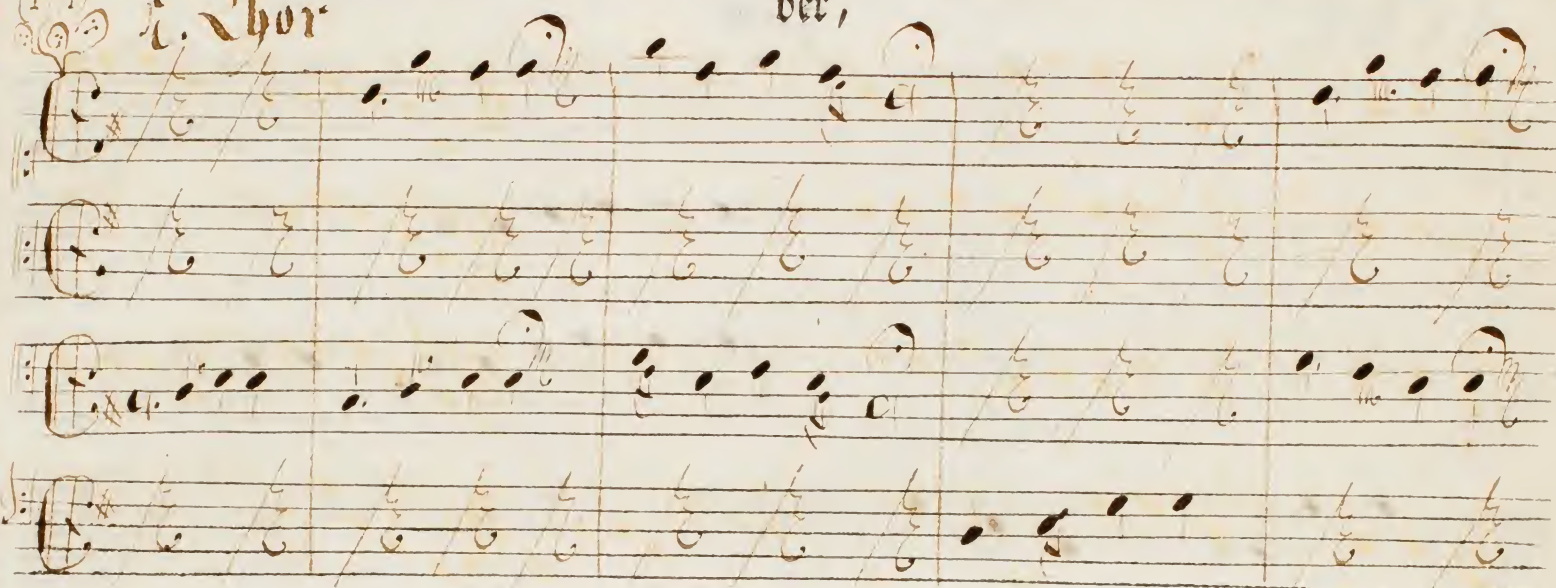 1. Chor
ber,